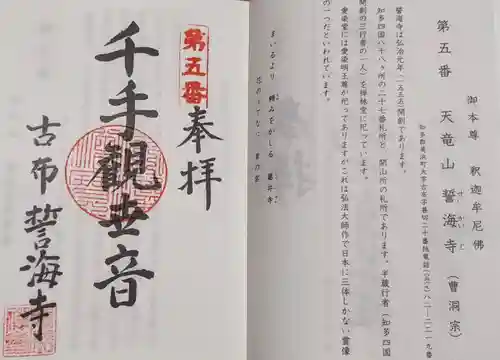 第五番 天竜山 誓海寺(曹洞宗)
御本尊 釈迦牟尼佛
誓海寺は弘治元年(一五五五)開創であります。
知多四国八十八ヶ所の二十七番札所と 開山所の札所であります。半蹠行者(知多四国
開創の三行者の一人)を禅林堂に祀っています。
愛染堂には愛染明王尊が祀ってありますがこれは弘法大師作で日本に三体しかない霊像
の一つだといわれています。
第五番
奉拝
千手觀世音
古布 誓海寺